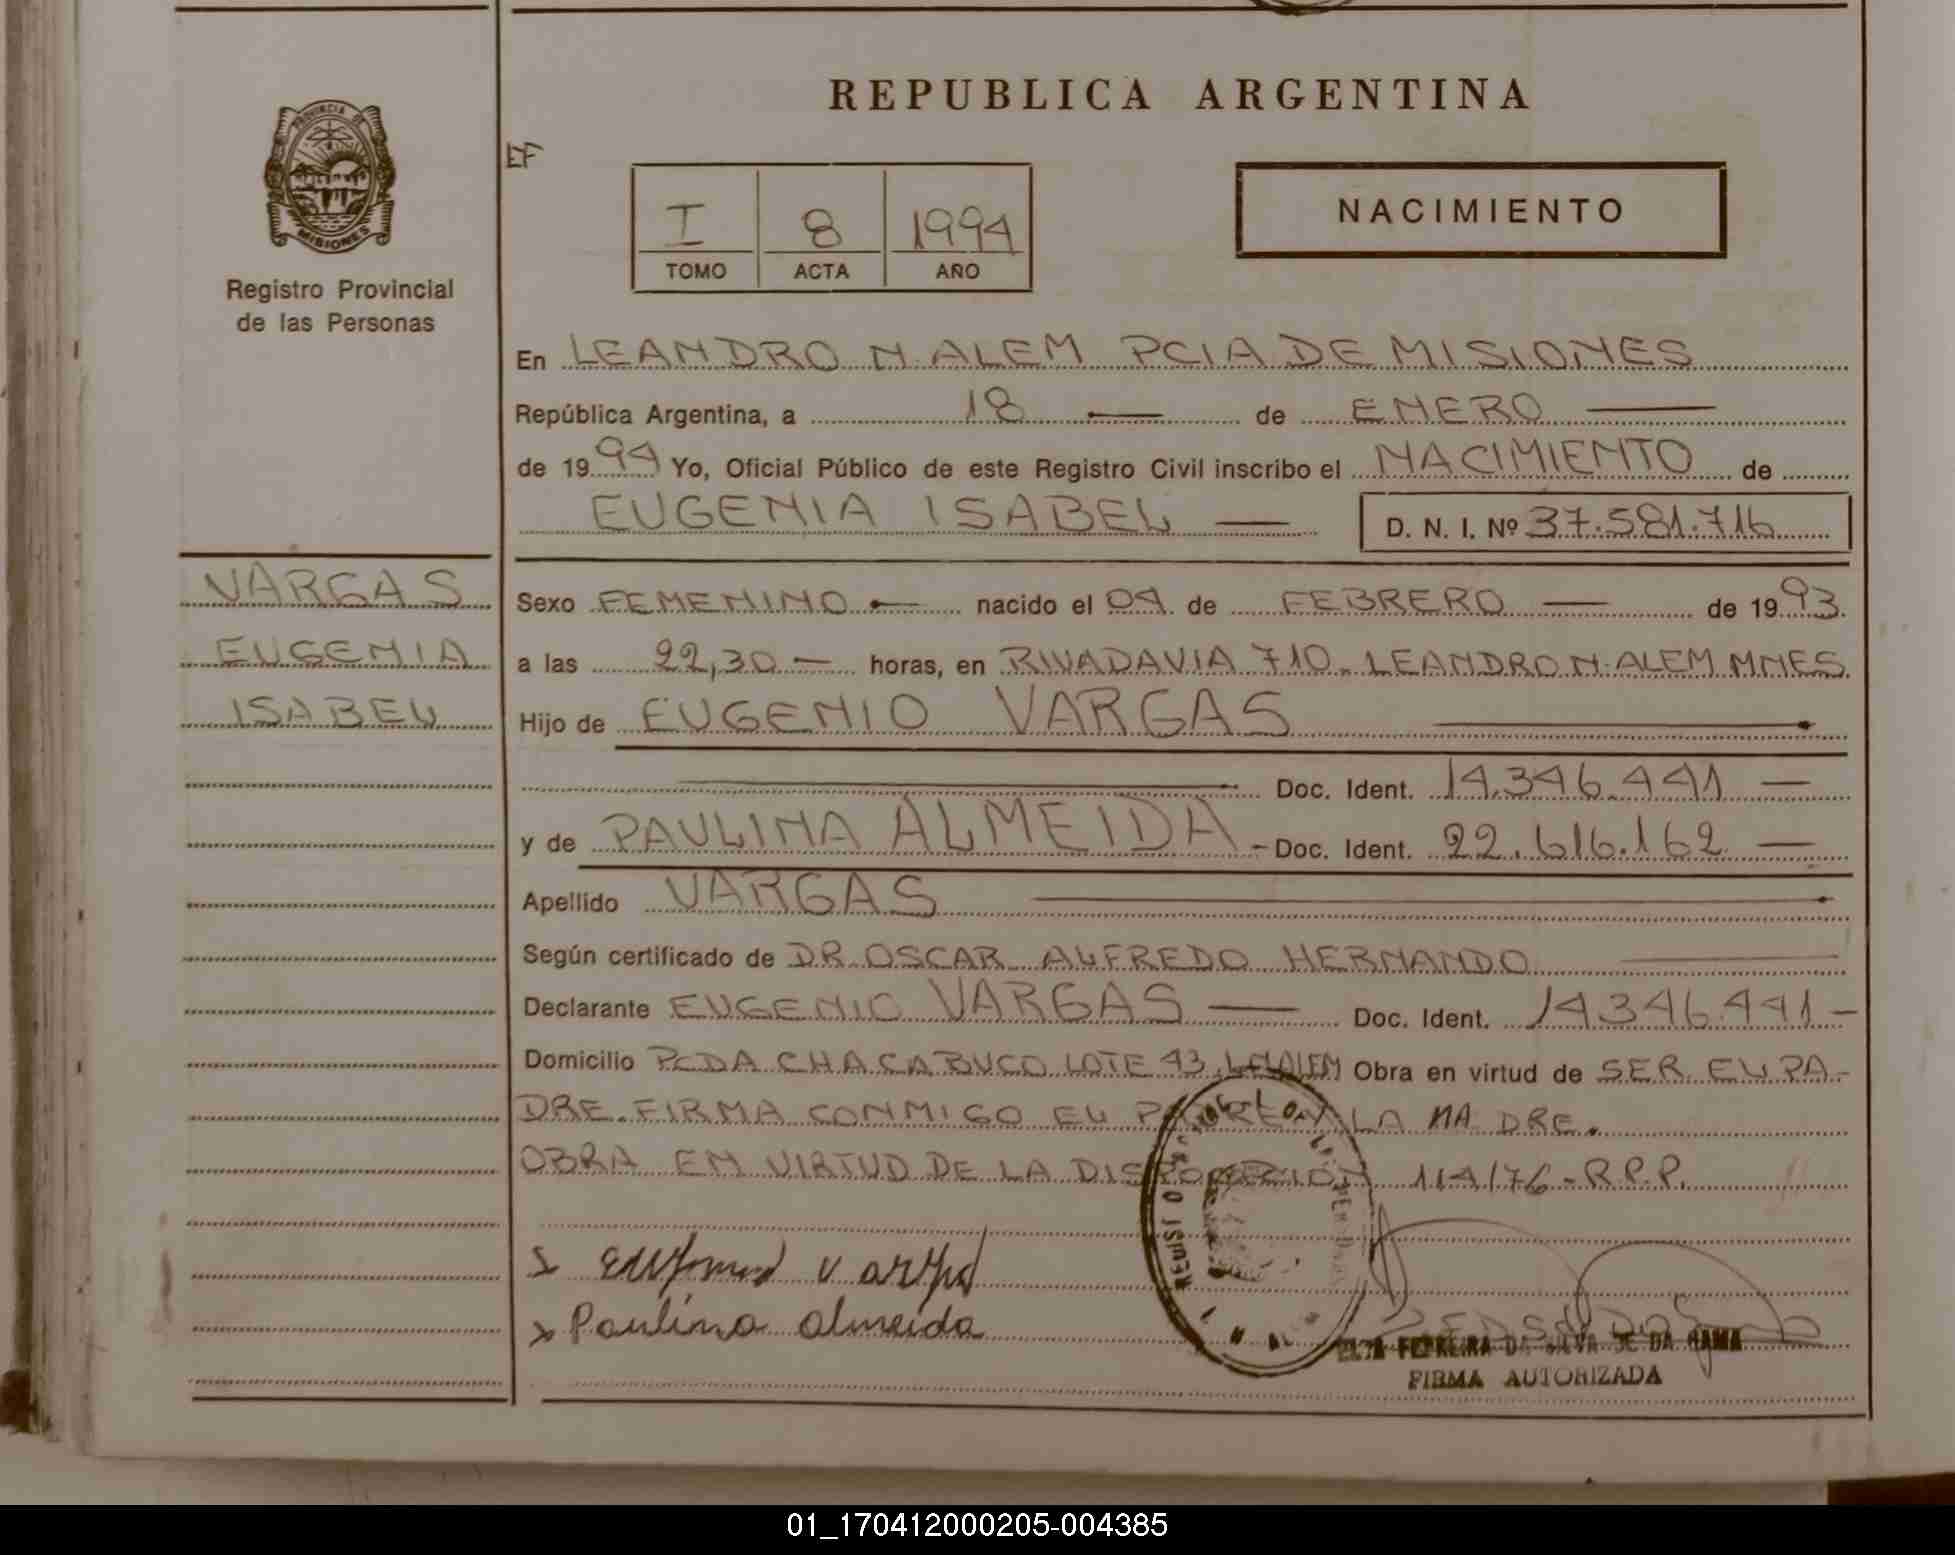 REPUBLICA ARGENTINA
PROVINCIA DE
MISIONES
Registro Provincial
de las Personas
EF
I 8 1994
TOMO ACTA AÑO
NACIMIENTO
En LEANDRO N. ALEM PCIA DE MISIONES
República Argentina, a 18 — de ENERO —
de 1994 Yo, Oficial Público de este Registro Civil inscribo el NACIMIENTO de
EUGENIA ISABEL — D. N. I. Nº 37.581.716
VARGAS
EUGENIA
ISABEL
Sexo FEMENINO — nacido el 04 de FEBRERO — de 1993
a las 22,30 — horas, en RIVADAVIA 710. LEANDRO N. ALEM MNES.
Hijo de EUGENIO VARGAS —
— Doc. Ident. 14.346.441 —
y de PAULINA ALMEIDA - Doc. Ident. 22.616.162 —
Apellido VARGAS —
Según certificado de DR. OSCAR ALFREDO HERNANDO —
Declarante EUGENIO VARGAS — Doc. Ident. 14346.441 -
Domicilio PCDA CHACABUCO LOTE 43 L.N.ALEM Obra en virtud de SER EL PA-
DRE. FIRMA CONMIGO EL PADRE Y LA MADRE.
OBRA EN VIRTUD DE LA DISPOSICION 114/76 - R.P.P.
Vargas
Paulina almeida
FERREIRA DA SILVA DE DA GAMA
FIRMA AUTORIZADA
01_170412000205-004385